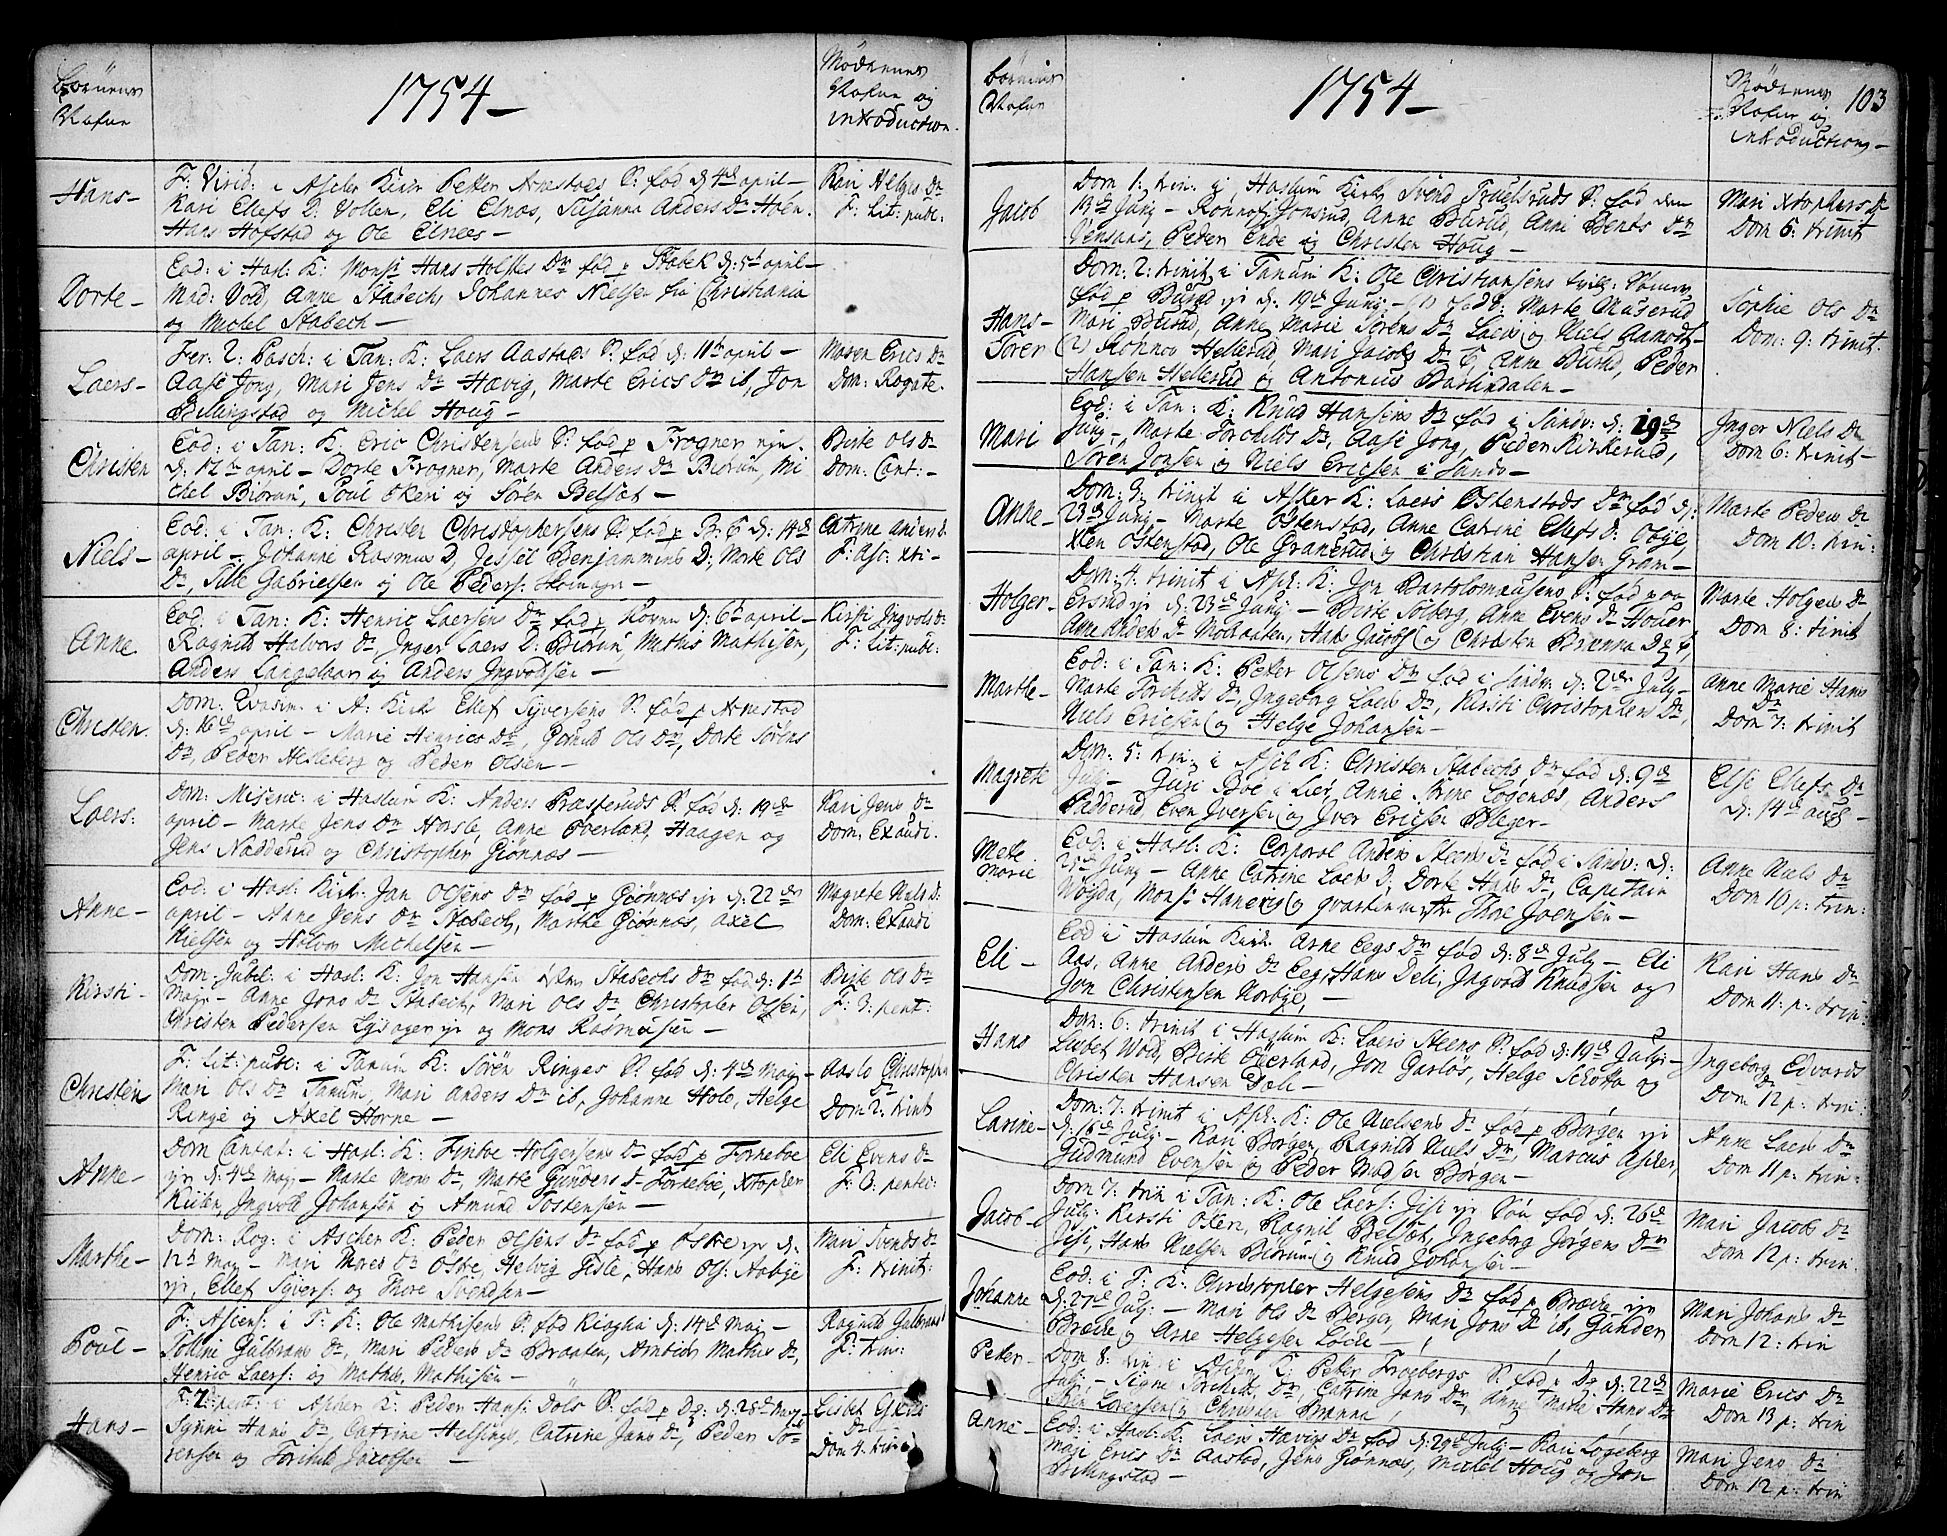 Børnenes
Nafne
1754 –
Mødrenes
Nafne og
introduction.
Hans –
F: Virid: i Asker Kirke Petter Arnestads S: fød d: 4de april –
Kari Ellefs D: Vollen, Eli Elnæs, Susanna Anders Dr Holm
Hans Hofstad og Ole Elnæs –
Kari Helges Dr
F: Lit: publ:
Dorte –
Eod: i Hasl: K: Monsr Hans Holstes Dr fød p Stabek d: 5t april –
Mad: Vold, Anne Stabech, Johannes Nielsen fra Christiania
og Michel Stabech –
Laers –
Fer: 2: Pasch: i Tan: K: Laers Aastads S: fød d: 11t april –
Aase Jong, Mari Jens Dr Hævig, Marte Erics Dr ib, Jon
Billingstad og Michel Houg –
Maren Erics Dr
Dom: Rogate.
Christen
Eod: i Tan: K: Eric Christensens S: fød p Frogner
april – Dorte Frogner, Marte Anders Dr Biørum, Mi
chel Biørum, Poul Økeri og Søren Belset –
Birte Ols Dr
Dom: Cant: –
Niels –
Eod: i Tan: K: Christen Christophersens S: fød p B: 6 d: 14de
april – Johanne Rasmus D, Sessel Benjammins D; Marte Ols
Dr, Tille Gabrielsen og Ole Peders:
Catrine anders D:
F: Asc: Xti –
Anne
Eod: i Tan: K: Henric Laersens Dr fød p d: 6t april –
Ragnild Halvors Dr Inger Laers D: Biørum, Mathis Mathisen,
Anders Langelaar og Anders Ingvoldsen –
Kirsti Ingvolds Dr
F: Lit: publ:
Christen.
Dom: Quasim: i A: Kirke Ellef Syversens S: fød p Arnestad
d: 16de april – Marie Henrics Dr, Gunild Ols Dr, Dorte Sørens
Dr, Peder Hesleberg og Peder Olsen –
Laers:
Dom: Miseric: i Haslum K: Anders Præsteruds S: fød d: 19de
april – Marte Jens Dr Horsle, Anne Overland, Haagen og
Jens Nadderud og Christopher Giønnæs –
Kari Jens Dr
Dom: Exaudi.
Anne –
Eod: i Hasl: Kirk: Jan Olsens Dr fød p Giønnes yr d: 22de
april – Anne Jens Dr Stabech, Marthe Giønnes, axel
Nielsen og Halvor Michelsen –
Magrete Niels D:
Dom: Exaudi
Kirsti –
Dom: Jubil: i Hasl: K: Jon Hansen Stabechs Dr fød d: 1t
Maji – Anne Jons Dr Stabech, Mari Ols Dr Christopher Olsen,
Christen Pedersen Lysager yr og Mons Rasmusen –
Birte Ols Dr
F: 3: pent:
Christen
F: Lit: publ: i Tanum K: Søren Ringes S: fød d: 4de maj –
Mari Ols Dr Tanum, Mari Anders Dr ib, Johanne Hole, Helge
Ringe og Axel Horne –
Aaslo Christoph
Dr
Dom 2: trinit
Anne –
Dom Cantat: i Hasl: K: Findve Holgersens Dr fød p Fornebøe
yr d: 4de maj – Marte Mons Dr, Marte Gunders Dr Fornebøe, Xtopher
Killen, Ingvold Johansen og Amund Tostensen –
Eli Evens Dr
F: 3: pentec:
Marthe –
Dom: Rog: i Ascher K: Peder Olsens Dr fød p Østre yr d:
12t maj – Mari Thores Dr Østre, Helvig Gisle, Hans Ols: Aabye
yr, Ellef Syvers: og Thore Svendsen –
Mari Svends Dr
F: trinit:
Poul –
F: Ascens: i T: K: Ole Mathisens S: fød Kiagha d: 14de maj –
Tolline Gulbrans Dr, Mari Peders Dr Braaten, Arnbiør Mathis Dr,
Henric Laers: og Mathis Mathisen –
Ragnild Gulbrans
F: trin:
Hans –
F: 2: pent: i Asker K: Peder Hans: Døls S: fød p Do: d: 28de maj –
Synni Hans Dr, Catrine Helsing, Catrine Jans Dr, Peder So=
rensen og Torkild Jacobsen –
Lisbet
Dr
Dom 4: trin
Børnenes
Nafne
1754 –
Mødrenes
Nafne og
introduction –
103
Jacob
Dom 1: trin: i Haslum Kirke Svend Truelsruds S: fød den
13de Junij – Rønnou Jonsrud, Anne Burud, Anne Bents Dr
Vensaas, Peder Ende og Christen Houg –
Mari Xtophers Dr
Dom 6: trinit
Hans –
Søren
Dom: 2: trinit, i Tanum K: Ole Christiansens tvill: Sønner
fød p Burud yr d: 19de Junij – (1) fadd: Marte Nuserud
Mari Burud, Anne Marie Sørens Dr Laers og Niels Aamodt
(2) Rønnov Hellerud, Mari Jacobs Dr 6, Anne Burud, Peder
Hansen Hellerud og Antonius Barlindalen –
Sophie Ols Dr
Dom: 9: trinit
Mari
Eod: i Tan: K: Knud Hansens Dr fød i Sandv: d: 19de
Junij – Marte Torchilds Dr, Aase Jong, Peder Kirkerud,
Søren Jonsen og Niels Ericsen i Sandv –
Inger Niels Dr
Dom 6: trinit –
Anne –
Dom: 3: trinit i Asker K: Laers Østenstads Dr fød d:
23de Junij – Marte Østenstad, Anne Catrine Ellefs D: Obye,
Xten Østenstad, Ole Granerud og Christian Hanse: Gram –
Marte Peders Dr
Dom 10: trin:
Holger –
Dom: 4: trinit i Ask: K: Jon Bartolomæusens S: fød paa
Ersrud yr d: 23de Junij – Birte Solberg, Anne Evens Dr Houer
Anne Anders Dr, Hans Jacobs: og Christen Brenna
Marte Holgers Dr
Dom 8: trinit
Marthe –
Eod: i Tan: K: Petter Olsens Dr fød i Sandv: d: 2de July –
Marte Torchilds Dr, Ingeborg Laers Dr, Kirsti Christophers Dr,
Niels Ericsen og Helge Johansen –
Anne Marie Hans
Dr
Dom 7: trinit
Magrete
Dom: 5: trin, i Ask: K: Christen Stabechs Dr fød d: 9de
Julj – Guri Boe i Lier, Anne Stine Løgenæs, Anders
Padderud, Even Iversen og Iver Ericsen Bleger –
Elsi Ellefs Dr
d: 14de aug –
Mete
Marie
Eod: i Hasl: K: Corporal Anders Steens Dr fød i Sandv: d:
25de Junij – Anne Catrine Laers D, Dorte Hans Dr, Capitain
Wøyda, Monsr Hanevig og Thore Joensen –
Anne Niels Dr
Dom 10 p: trin:
Eli –
Eod i Haslum Kirk: Arne Eegs Dr fød d: 8de July – Eli
Aas, Anne Anders Dr Eeg, Hans Deli, Ingvold Knudsen og
Jon Christensen Norbye, –
Kari Hans Dr
Dom 11: p: trin:
Hans
Dom: 6: trinit i Haslum K: Laers Steens S: fød d: 19de July:
Lisbet Wold, Birte Overland, Jon Garløs, Helge Schotta og
Christen Hansen Dæli –
Ingeborg Edvards
Dr
Dom 12 p: trin:
Larine –
Dom: 7: trinit i Ask: K: Ole Nielsens Dr fød p Børgen yr
d: 16de Julj – Kari Børgen, Ragnild Niels Dr, Marcus Asker,
Gudmund Evensen og Peder Madsen Børgen –
Anne Laers Dr
Dom 11 p: trin:
Jacob –
Dom 7: trin i Tan: K: Ole Laers: Jisi yr Søn fød d: 26de
Julj: Kirsti Oteri, Ragnil Belset, Ingeborg Jørgens Dr
Jisi, Hans Nielsen Biørum og Knud Johansen –
Mari Jacobs Dr
Dom 12 p: trin:
Johanne
Eod: i T: K: Christopher Helgesens Dr fød p Bræche yr
d: 27de Julj: – Mari Ols Dr Berger, Mari Jons Dr ib, Gunder
Bræche og Arne Helgesen Løche –
Mari Johans Dr
Dom 12: trin
Peter –
Dom 8: trin i Asker K: Petter Froebergs S: fød p Do d: 22de
Julj – Signe Torchilds Dr, Catrine Jans Dr, Anne Marte Hans Dr
Søren Lorensen og Christen Brænna
Marie Erics Dr
Dom 13 p: trin
Anne –
Eod: i Hasl: K: Laers Hævigs Dr fød d: 29de Julj – Kari Løgeberg
Mari Erics Dr Aastad, Jens Giønnæs, Michel Houg og Jon
Billingstad –
Mari Jens Dr
Dom 12 p: trin